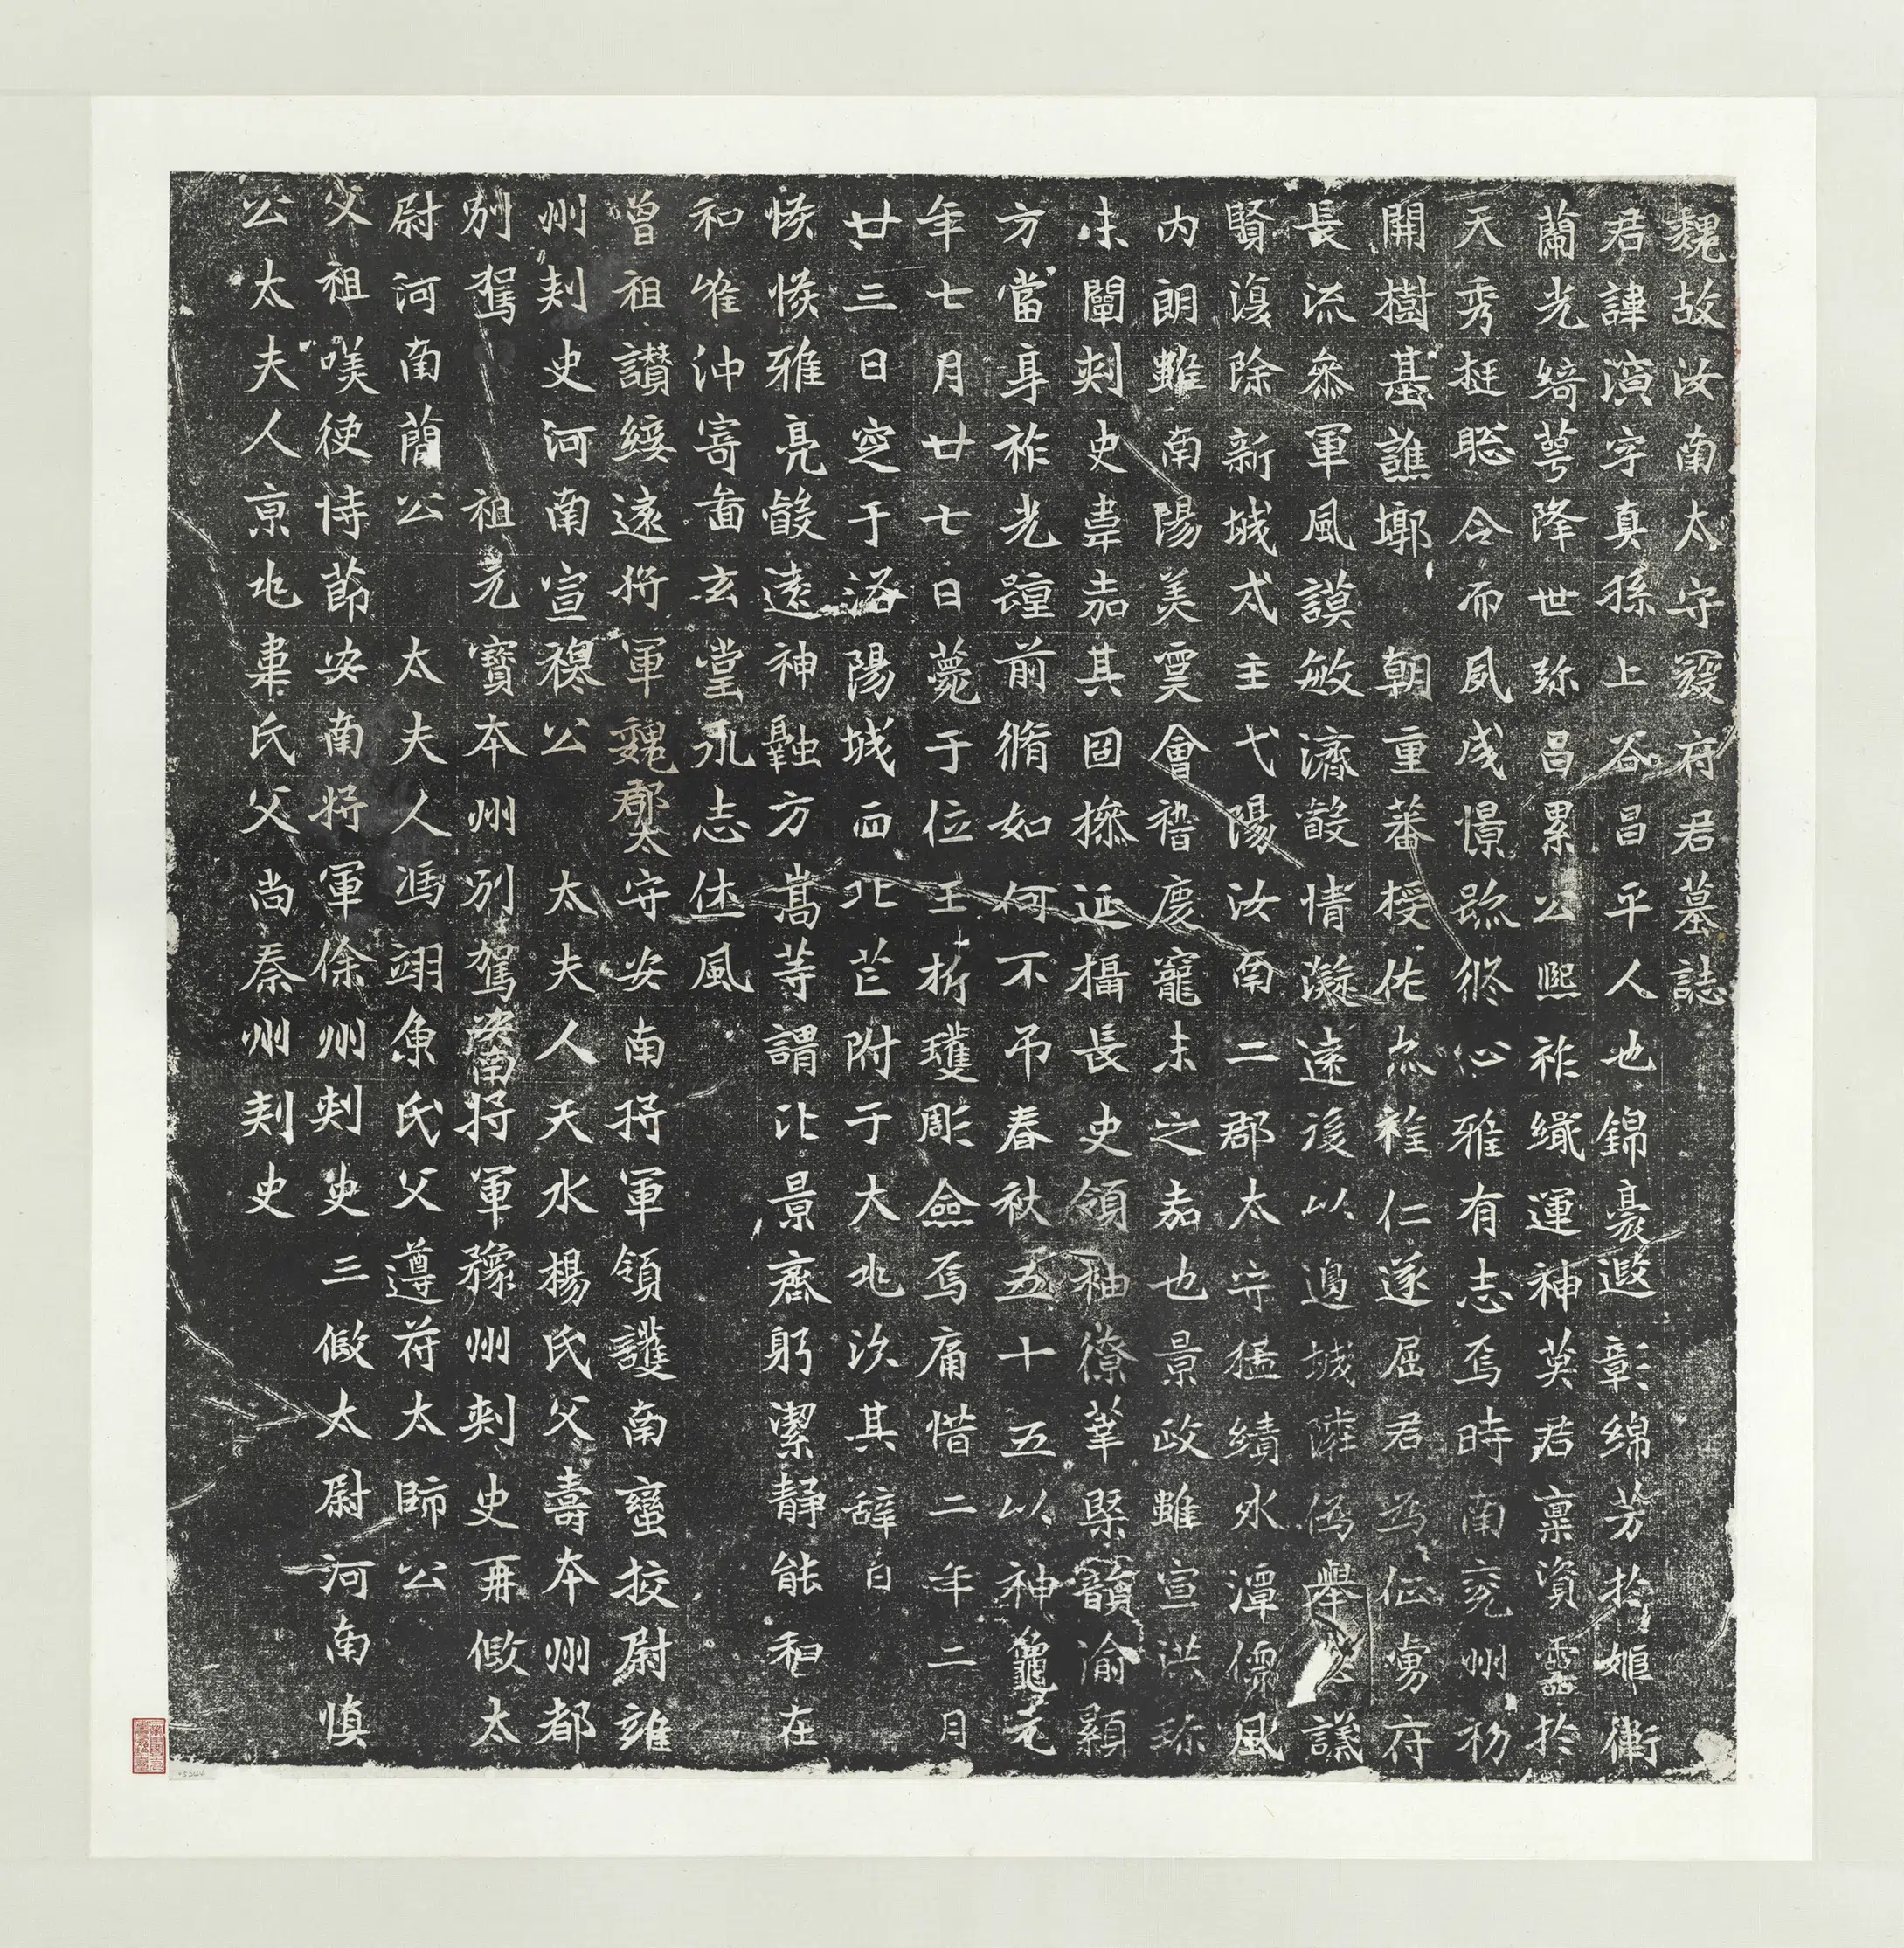 魏故汝南太守寇府君墓誌
君諱演字真孫上谷昌平人也錦裛遐彰綿芳於姬衛
蘭光綺萼降世弥昌累公熙祚纖運神英君稟資靈於
天秀挺聡令而夙成憬跡修心雅有志焉時南兖州初
開樹基譙墎 朝重蕃授佐亦難仁遂屈君為征虜府
長流參軍風謨敏濟毅情凝遠後以邊城隣偽舉 議
賢復除新城弍主弋陽汝南二郡太守猛績冰潭儒風
内朗雖南陽美寞會稽慶寵未之嘉也景政雖宣洪弥
未闡刺史韋嘉其固操延攝長史領袖僚寀槩韻渝顯
方當身祚光踵前脩如何不弔春秋五十五以神龜元
年七月廿七日薨于位玉折瓊彫僉焉痛惜二年二月
廿三日窆于洛陽城西北芒附于大兆次其辞曰
悠悠雅亮毅遠神融方嵩等謂比景齊躬潔静能和在
和唯沖寄啚玄堂永志休風
曾祖讚綏遠将軍魏郡太守安南将軍領護南蠻挍尉雍
州刾史河南宣穆公 太夫人天水楊氏父壽本州都
別駕 祖元寶本州別駕安南将軍豫州刾史再假太
尉河南蕳公 太夫人馮翊魚氏父遵苻太師公
父祖嘆使恃莭安南将軍徐州刾史三假太尉河南慎
公太夫人京兆韋氏父尚秦州刾史